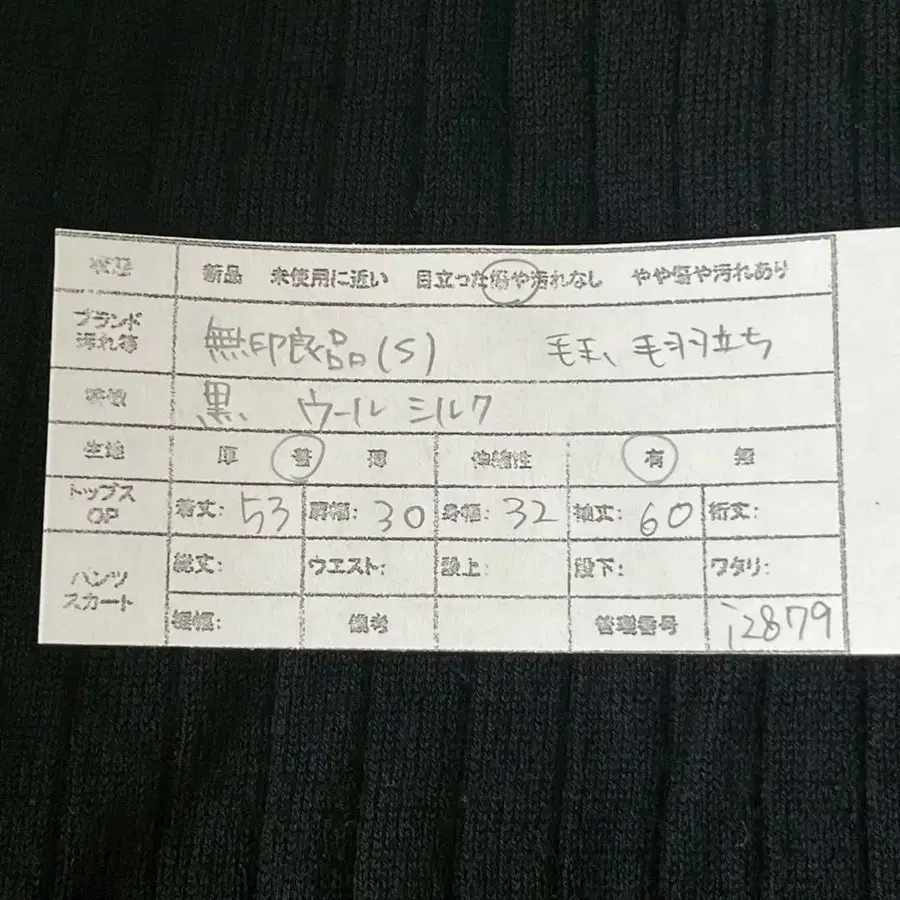 状態 新品 未使用に近い 目立った傷や汚れなし やや傷や汚れあり
ブランド
汚れ等 無印良品(S) 毛玉、毛羽立ち
特徴 黒 ウール シルク
生地 厚 普 薄 伸縮性 有 無
トップス
OP 着丈: 53 肩幅: 30 身幅: 32 袖丈: 60 裄丈:
パンツ
スカート 総丈: ウエスト: 股上: 股下: ワタリ:
裾幅: 備考 管理番号 i2879